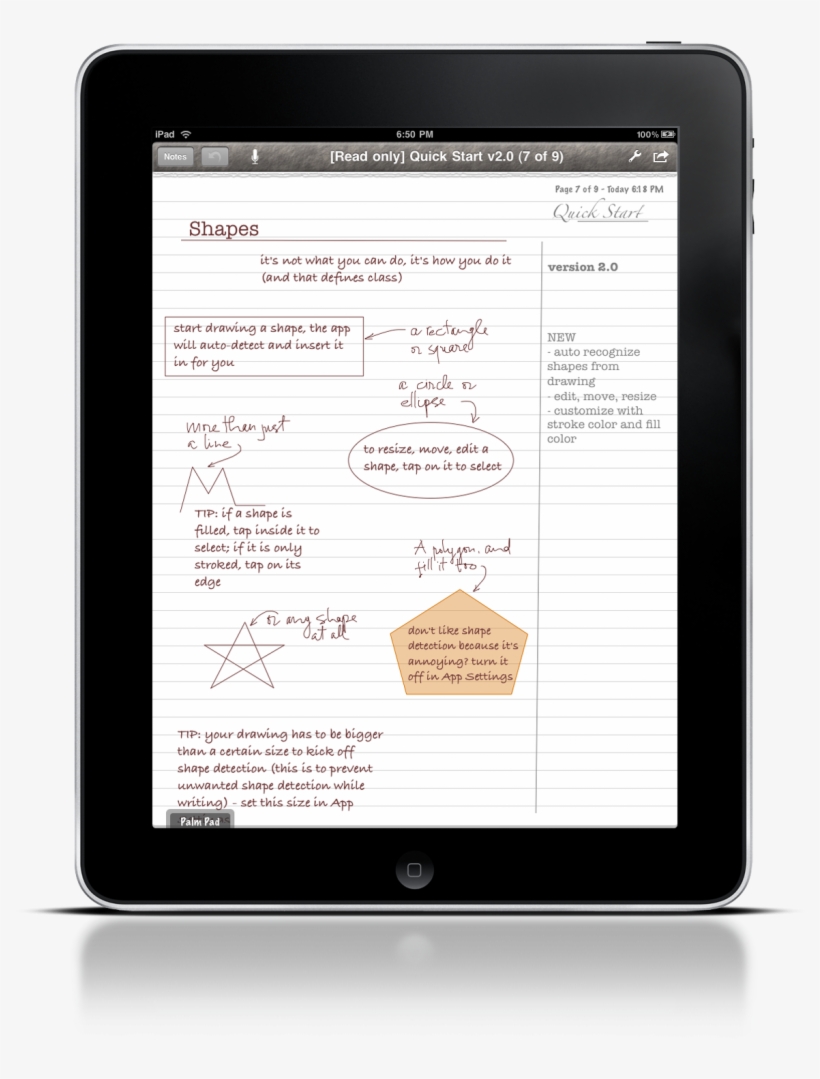 iPad 6:50 PM 100%
Notes [Read only] Quick Start v2.0 (7 of 9)
Page 7 of 9 - Today 6:18 PM
Quick Start
Shapes
it's not what you can do, it's how you do it
(and that defines class)
version 2.0
start drawing a shape, the app
will auto-detect and insert it
in for you
a rectangle
or square
NEW
- auto recognize
shapes from
drawing
- edit, move, resize
- customize with
stroke color and fill
color
a circle or
ellipse
more than just
a line,
to resize, move, edit a
shape, tap on it to select
TIP: if a shape is
filled, tap inside it to
select; if it is only
stroked, tap on its
edge
A polygon. and
fill it too
or any shape
at all
don't like shape
detection because it's
annoying? turn it
off in App Settings
TIP: your drawing has to be bigger
than a certain size to kick off
shape detection (this is to prevent
unwanted shape detection while
writing) - set this size in App
Palm Pad